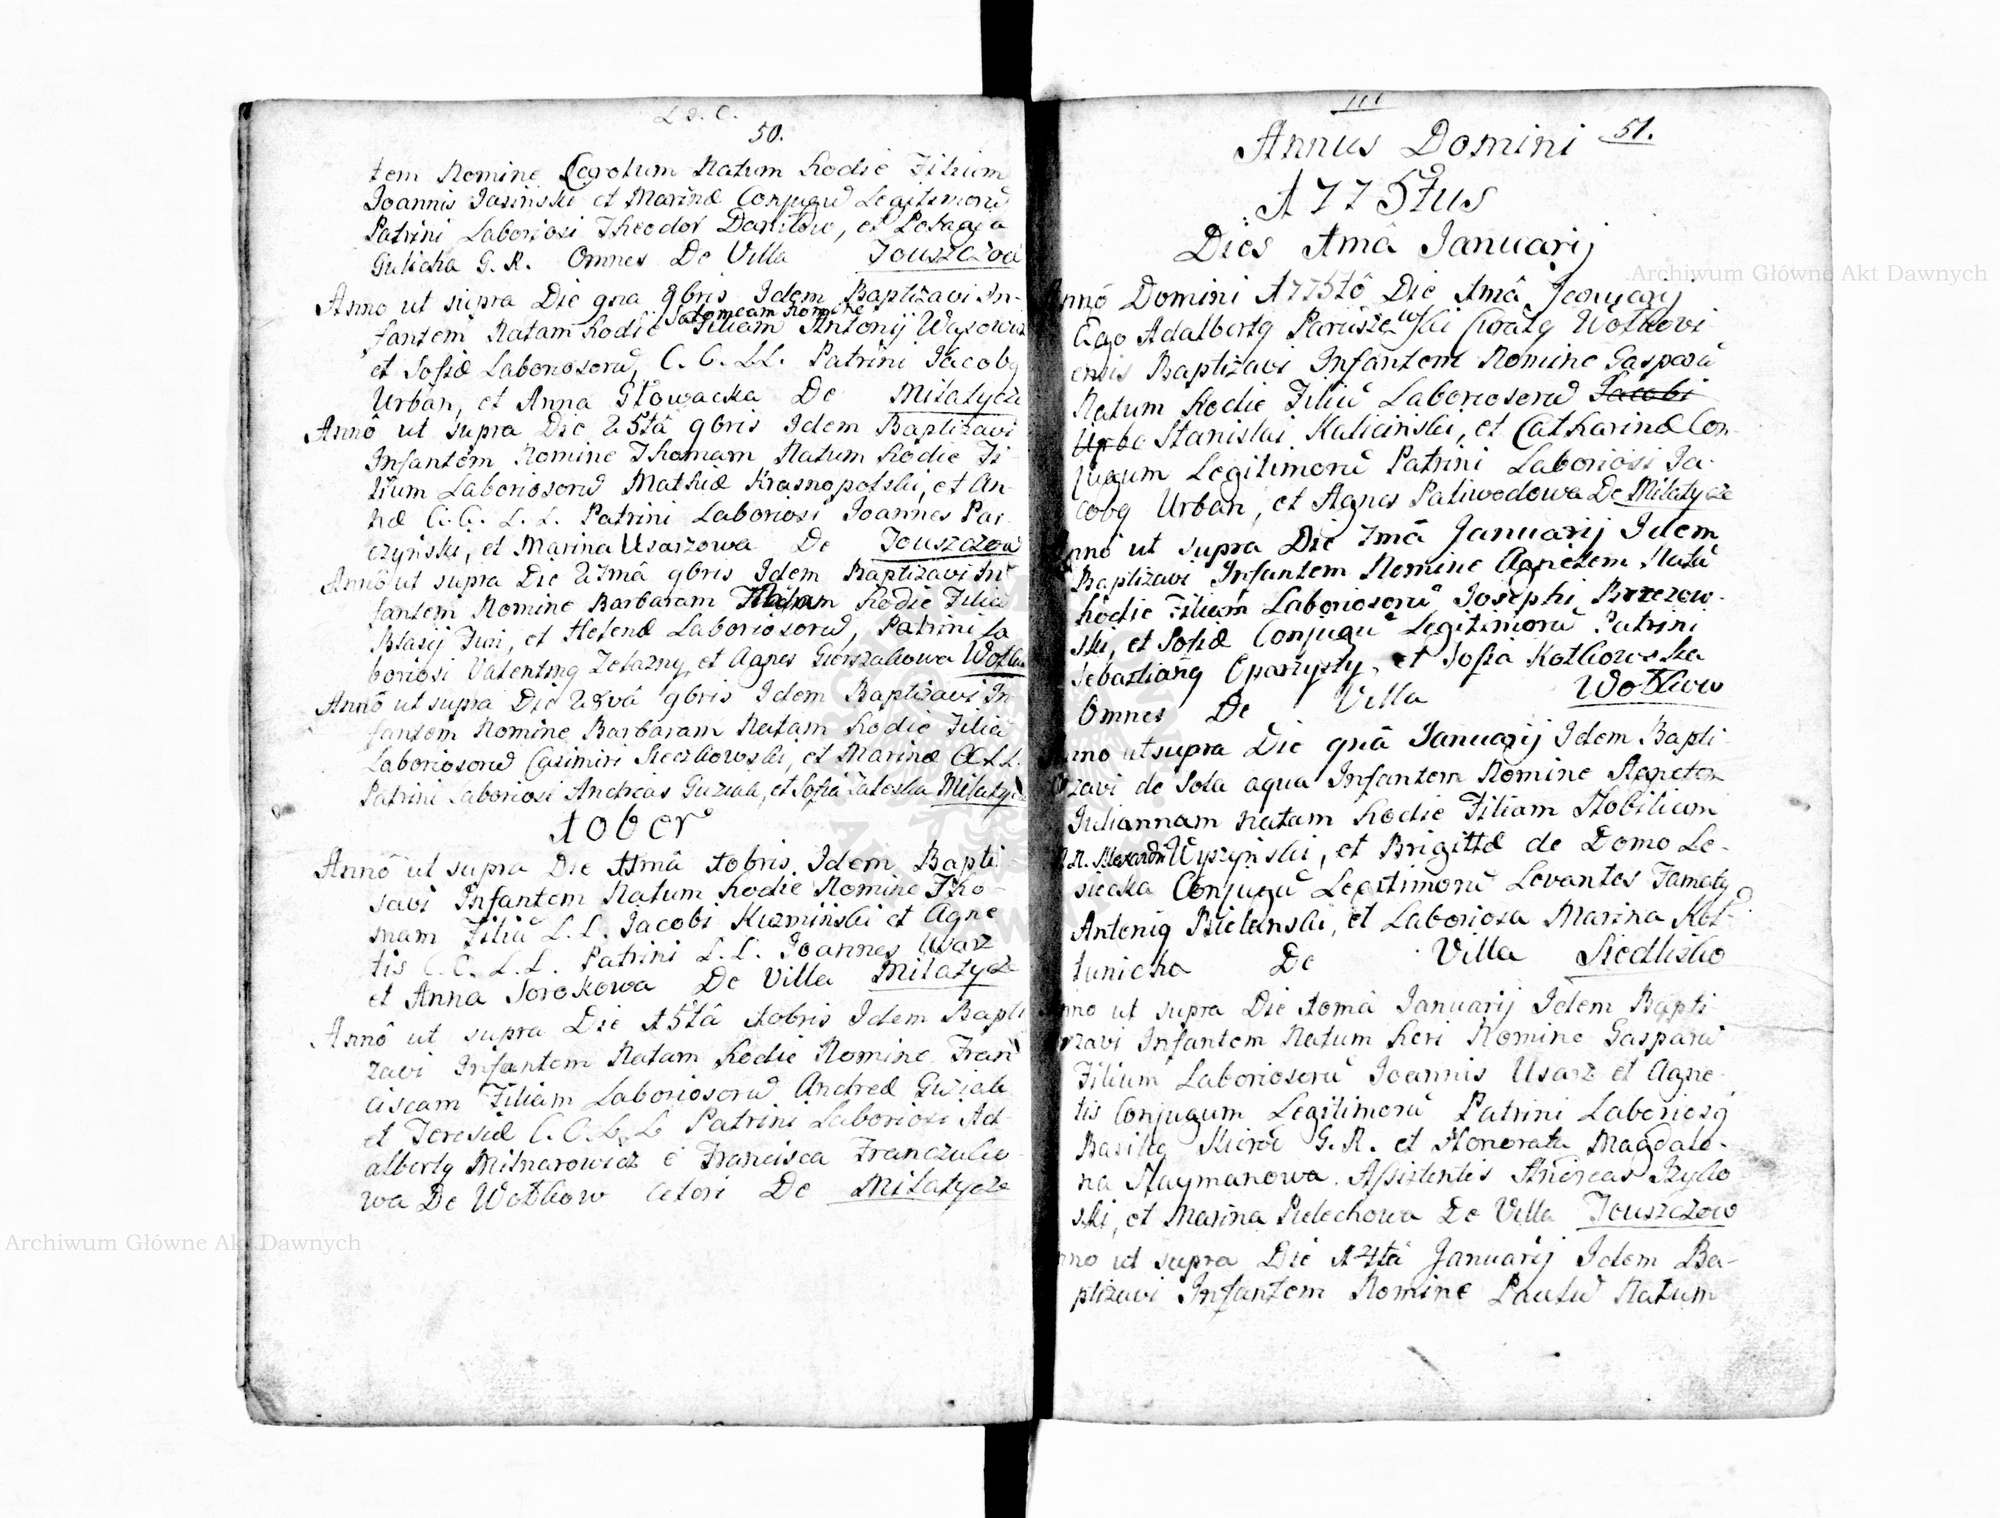 L. B. C.
50.
tem Nomine Carolum Natum hodie Filium
Joannis Jasinski et Marinæ Conjugũ Legitimorũ
Patrini Laboriosi Theodor Daniłow, et Pelagia
Gulicka G. R. Omnes De Villa Touszczow
Anno ut supra Die 9na 9bris Idem Baptizavi In-
Salomeam Nomine
fantem Natam hodie Filiam Antonij Wąsowicz
et Sofiæ Laboriosorũ, C. C. LL. Patrini Jacobg
Urban, et Anna Słowacka De Miłatycze
Annô ut supra Die 25tâ 9bris Idem Baptizavi
Infantem Nomine Thomam Natum hodie Fi-
lium Laboriosorũ Mathiæ Krasnopolski, et An-
næ C. C. L. L. Patrini Laboriosi Joannes Par-
czyński, et Marina Usarzowa De Touszczow
Annô ut supra Die 27mâ 9bris Idem Baptizavi In-
fantem Nomine Barbaram Natam hodie Filiã
Błasij Furi, et Helenæ Laboriosorũ, Patrini La
boriosi Valenting Zelazny, et Agnes Gierszakowa Wołkow
Annô ut supra Die 28vâ 9bris Idem Baptizavi In-
fantem Nomine Barbaram Natam hodie Filiã
Laboriosorũ Casimiri Reczkowski, et Marinæ C.C.L.L.
Patrini Laboriosi Andreas Guziała, et Sofia Zaleska Miłatycz
10ber
Annô ut supra Die 11mâ 10bris Idem Bapti-
savi Infantem Natum hodie Nomine Tho-
mam Filiũ L.L. Jacobi Kuzmiński et Agne
tis C. C. L. L. Patrini L. L. Joannes Usarz
et Anna Sorokowa De Villa Miłatycze
Annô ut supra Die 15tâ 10bris Idem Bapti
zavi Infantem Natam hodie Nomine Fran
ciscam Filiam Laboriosorũ Andreæ Guziała
et Teresiæ C. C. L. L. Patrini Laboriosi Ad-
albertg Mełnarowicz e Francisca Franczuko
wa De Wołkow Cetori De Miłatycze
111
51.
Annus Domini
1775tus
Dies 1mâ Januarij
Annô Domini 1775tô Die 1mâ Januarij
Ego Adalbertg Paruszewski Curatg Wołkovi-
ensis Baptizavi Infantem Nomine Gasparũ
Natum hodie Filiũ Laboriosorũ Jacobi
Urba Stanislai Kaliciński, et Catharinæ Con-
jugum Legitimorũ Patrini Laboriosi Ja-
cobg Urban, et Agnes Paliwodowa De Miłatycze
Annô ut supra Die 7mâ Januarij Idem
Baptizavi Infantem Nomine Agnetem Natã
hodie Filiam Laboriosorũ Josephi Brzezow-
ski, et Sofiæ Conjugũ Legitimorũ Patrini
Sebastiang Oparzysty, et Sofia Kotkowska
Omnes De Villa Wołkow
Anno ut supra Die 9nâ Januarij Idem Bapti-
zavi de Sola aqua Infantem Nomine Agnetem
Juliannam natam hodie Filiam Nobilium
Alexandri Wyszyński, et Brigittæ de Domo Le-
siecka Conjugũ Legitimorũ Levantes Famatg
Antonig Bielanski, et Laboriosa Marina Koł-
tunicka De Villa Siedlisko
Anno ut supra Die 10mâ Januarij Idem Bapti-
zavi Infantem Natum heri Nomine Gasparũ
Filium Laboriosorũ Joannis Usarz et Agne-
tis Conjugum Legitimorũ Patrini Laboriosg
Basilig G. R. et Honorata Magdale-
na Naymanowa. Assistentes Andreas Ryko
ski, et Marina Pelechowa De Villa Touszczow
Anno ut supra Die 14tâ Januarij Idem Ba-
ptizavi Infantem Nomine Paulũ Natum
Archiwum Główne Akt Dawnych
Archiwum Główne Akt Dawnych